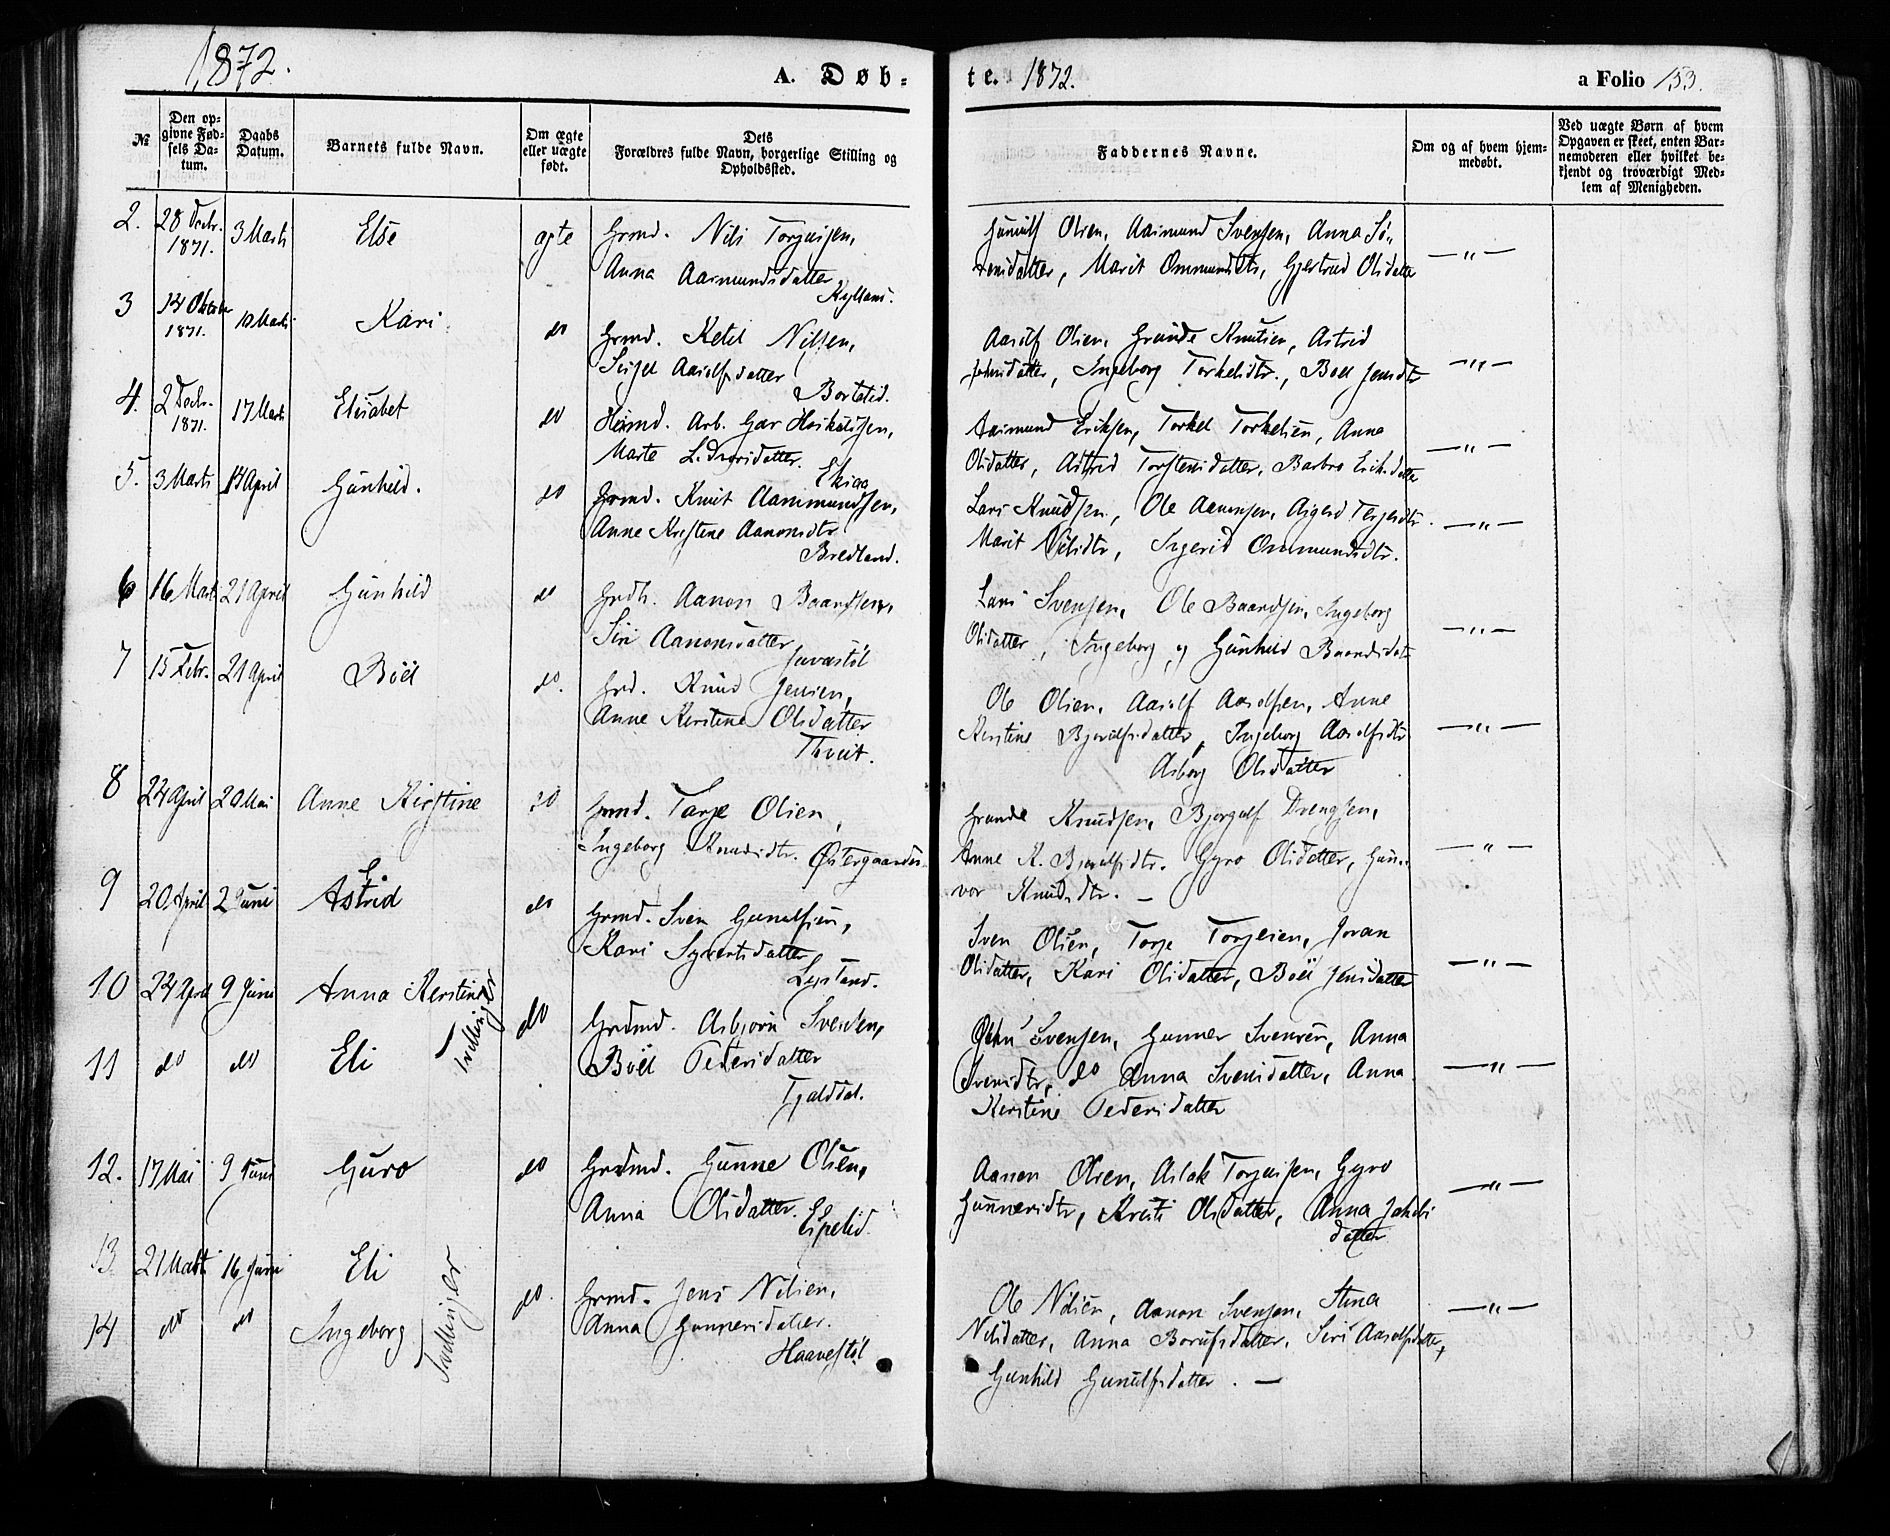 1872.
A. Døb-
te. 1872.
a Folio 153.
№
Den op-
givne Fød-
sels Da-
tum.
Daabs
Datum.
Barnets fulde Navn.
Om ægte
eller uægte
født.
Dets
Forældres fulde Navn, borgerlige Stilling og
Opholdssted.
Faddernes Navne.
Om og af hvem hjem-
medøbt.
Ved uægte Børn af hvem
Opgaven er skeet, enten Bar-
nemoderen eller hvilket be-
kjendt og troværdigt Med-
lem af Menigheden.
2. 28 Decbr. 1871. 3 Marts Else ægte Grmd. Nils Torjusen,
Anna Aasmundsdatter
Gunulf Olsen, Aasmund Svensen, Anna Sø-
rensdatter, Marit Ommundsdtr, Gjertrud Olsdatter — „ —
3 14 Oktober 1871. 10 Marts Kari do Grmd. Ketil Nilsen,
Aasulfsdatter
Bortelid.
Aasulf Olsen, Grunde Knutsen, Astrid
Johnsdatter, Ingeborg Torkelsdtr., Boel Jensdtr — „ —
4. 2 Decbr. 1871. 17 Marts Elisabet do Huusmd. Arb. Gar
Marte
Aasmund Eriksen, Torkel Torkelsen, Anna
Olsdatter, Astrid Torstensdatter, Barbro Eriksdatter — „ —
5. 3 Marts 14 April Gunhild. do Grmd. Knut Aanmundsen,
Anne Kristene Aanonsdtr
Bredland.
Lars Knudsen, Ole Aanonsen, Asgerd Terjesdtr.
Marit Nilsdtr, Ingerid Ommundsdtr. — „ —
6 16 Marts 21 April Gunhild do Grdb. Aanon Baardsen,
Siri Aanonsdatter
Lars Svensen, Ole Baardsen, Ingeborg
Olsdatter, Ingeborg og Gunhild Baardsdatr — „ —
7 15 Febr. 21 April Böel do. Grd. Knud Jensen,
Anne Kerstene Olsdatter
Thveit.
Ole Olsen, Aasulf Aasulfsen, Anne
Kerstine Bjorulfsdatter, Ingeborg Aasulfsdtr
Asborg Olsdatter — „ —
8 24 April 20 Mai Anne Kirstine do Grmd. Tarje Olsen,
Ingeborg Knudsdtr.
Grunde Knudsen, Bjorgulf Drengsen,
Anne K. Bjorulfsdtr. Gyro Olsdatter, Gun-
vor Knudsdtr. — — „ —
9 20 April 2 Juni Astrid do Grmd. Sven Gunulfsen,
Kari Syvertsdatter
Sven Olsen, Torje Torjeisen, Joran
Olsdatter, Kari Olsdatter, Boel Jensdatter — „ —
10 24 April 9 Juni Anna Kerstine
11 do do Eli
Tvillinger
do Grdmd. Asbjørn Svensen,
Böel Pedersdatter
Tjalddal.
John Svensen, Gunner Svensen, Anna
Svensdtr, do Anna Svensdatter, Anna
Kerstine Pedersdatter — „ —
12. 17 Mai 9 Juni Guro do Grdmd. Gunne Olsen,
Anna Olsdatter.
Espelid.
Aanon Olsen, Aslak Torjusen, Gyro
Gunnersdtr, Kristi Olsdatter, Anna Jakobs
datter — „ —
13. 21 Marts 16 Juni Eli
14 do do Ingeborg
Tvillinger
do. Grmd. Jens Nilsen,
Anna Gunnersdatter.
Haavestöl
Ole Nilsen, Aanon Svensen, Stina
Nilsdatter, Anna Borufsdatter, Siri Aasulfsdatter,
Gunhild Gunulfsdatter. — — „ —